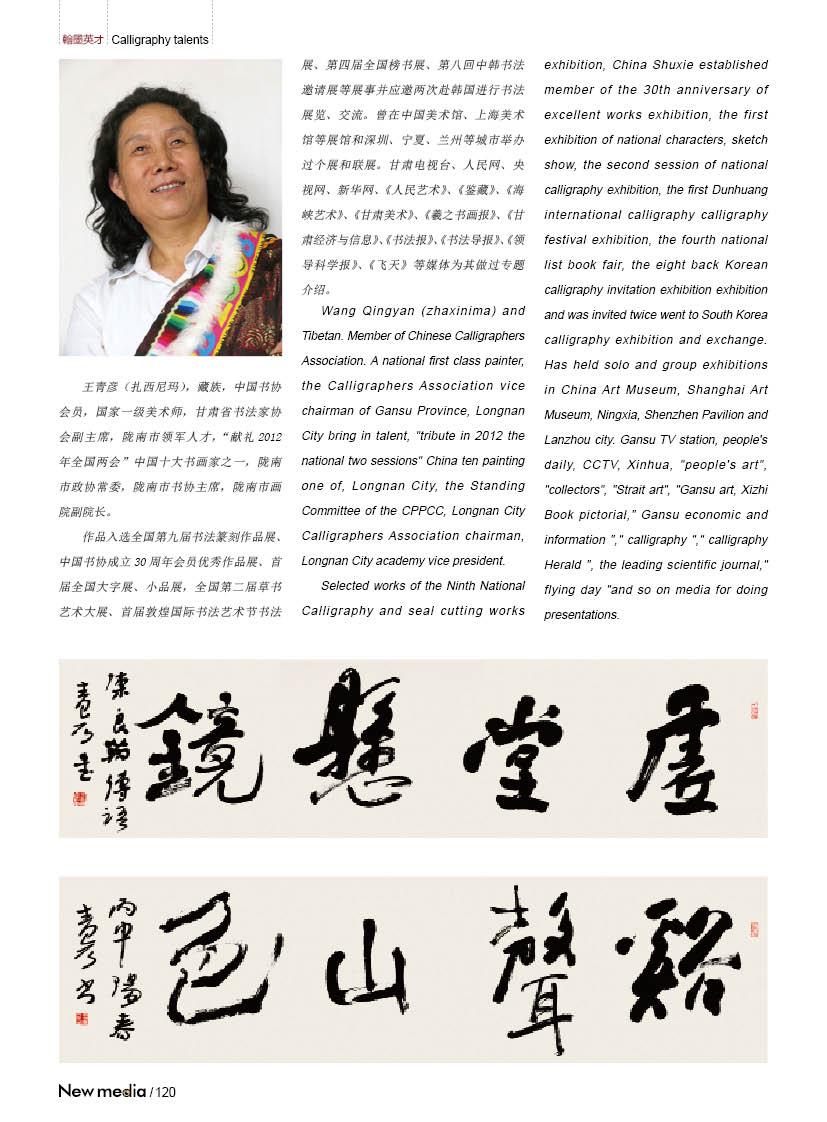 翰墨英才 Calligraphy talents
王青彦（扎西尼玛），藏族，中国书协
会员，国家一级美术师，甘肃省书法家协
会副主席，陇南市领军人才，“献礼 2012
年全国两会”中国十大书画家之一，陇南
市政协常委，陇南市书协主席，陇南市画
院副院长。
作品入选全国第九届书法篆刻作品展、
中国书协成立 30 周年会员优秀作品展、首
届全国大字展、小品展，全国第二届草书
艺术大展、首届敦煌国际书法艺术节书法
展、第四届全国榜书展、第八回中韩书法
邀请展等展事并应邀两次赴韩国进行书法
展览、交流。曾在中国美术馆、上海美术
馆等展馆和深圳、宁夏、兰州等城市举办
过个展和联展。甘肃电视台、人民网、央
视网、新华网、《人民艺术》、《鉴藏》、《海
峡艺术》、《甘肃美术》、《羲之书画报》、《甘
肃经济与信息》、《书法报》、《书法导报》、《领
导科学报》、《飞天》等媒体为其做过专题
介绍。
Wang Qingyan (zhaxinima) and
Tibetan. Member of Chinese Calligraphers
Association. A national first class painter,
the Calligraphers Association vice
chairman of Gansu Province, Longnan
City bring in talent, "tribute in 2012 the
national two sessions" China ten painting
one of, Longnan City, the Standing
Committee of the CPPCC, Longnan City
Calligraphers Association chairman,
Longnan City academy vice president.
Selected works of the Ninth National
Calligraphy and seal cutting works
exhibition, China Shuxie established
member of the 30th anniversary of
excellent works exhibition, the first
exhibition of national characters, sketch
show, the second session of national
calligraphy exhibition, the first Dunhuang
international calligraphy calligraphy
festival exhibition, the fourth national
list book fair, the eight back Korean
calligraphy invitation exhibition exhibition
and was invited twice went to South Korea
calligraphy exhibition and exchange.
Has held solo and group exhibitions
in China Art Museum, Shanghai Art
Museum, Ningxia, Shenzhen Pavilion and
Lanzhou city. Gansu TV station, people's
daily, CCTV, Xinhua, "people's art",
"collectors", "Strait art", "Gansu art, Xizhi
Book pictorial," Gansu economic and
information "," calligraphy "," calligraphy
Herald ", the leading scientific journal,"
flying day "and so on media for doing
presentations.
虚堂懸鏡
陳良翰傳語
青彦書
谿聲山色
丙申陽春
青彦书
New media / 120